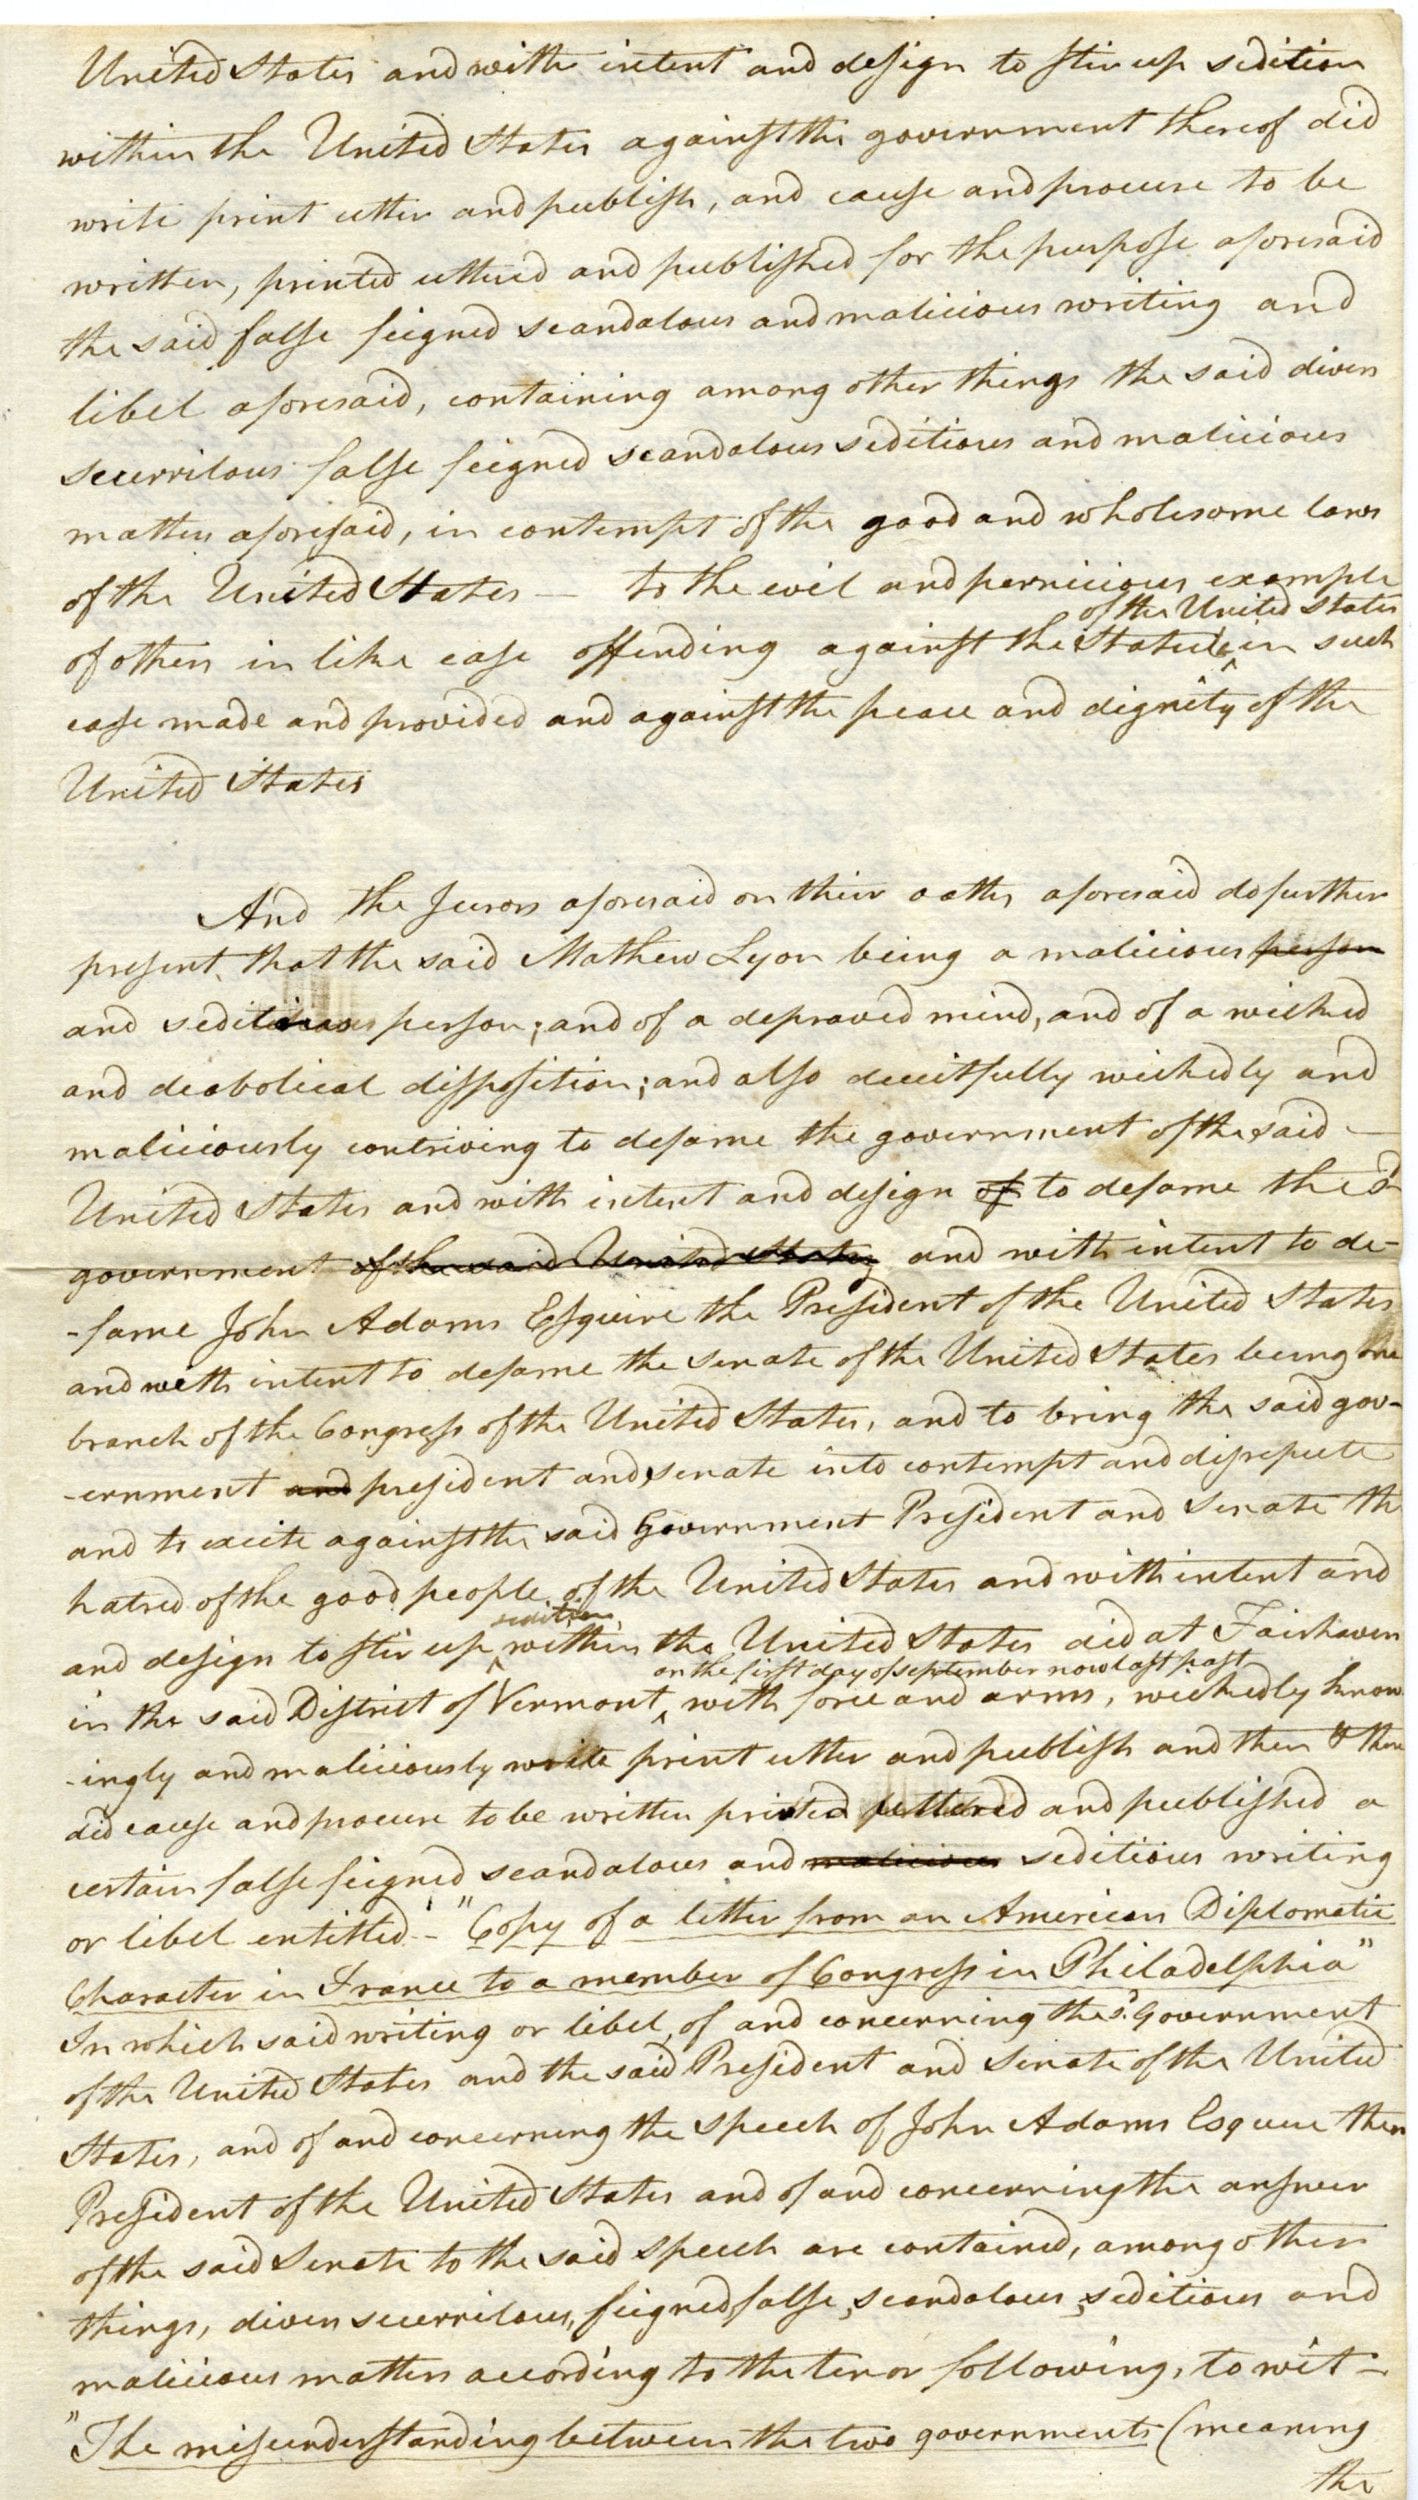 United States and with intent and design to stir up sedition
within the United States against the government thereof did
write print utter and publish, and cause and procure to be
written, printed uttered and published for the purpose aforesaid
the said false feigned scandalous and malicious writing and
libel aforesaid, containing among other things the said divers
scurrilous false feigned scandalous seditious and malicious
matters aforesaid, in contempt of the good and wholesome laws
of the United States — to the evil and pernicious example
of the United States
of others in like case offending against the Statute in such
case made and provided and against the peace and dignity of the
United States
And the Jurors aforesaid on their oaths aforesaid do further
present, that the said Mathew Lyon being a malicious person
and seditious person; and of a depraved mind, and of a wicked
and deabolical disposition; and also deceitfully wickedly and
maliciously contriving to defame the government of the said —
United States and with intent and design of to defame the sd
government of the said United States and with intent to de-
-fame John Adams Esquire the President of the United States
and with intent to defame the senate of the United States being one
branch of the Congress of the United States, and to bring the said gov-
-ernment and president and senate into contempt and disrepute
and to excite against the said Government President and Senate the
hatred of the good people of the United States and with intent and
sedition
and design to stir up within the United States did at Fairhaven
on the first day of september now last past
in the said District of Vermont, with force and arms, wickedly know
-ingly and maliciously write print utter and publish and then & there
did cause and procure to be written printed uttered and published a
certain false feigned scandalous and malicious seditious writing
or libel entitled - "Copy of a letter from an American Diplomatic
Character in France to a member of Congress in Philadelphia"
In which said writing or libel, of and concerning the sd. Government
of the United States and the said President and Senate of the United
States, and of and concerning the speech of John Adams Esquire then
President of the United States and of and concerning the answer
of the said Senate to the said speech are contained, among other
things, divers scurrilous, feigned, false, scandalous, seditious and
malicious matters according to the tenor following, to wit —
"The misunderstanding between the two governments (meaning
the